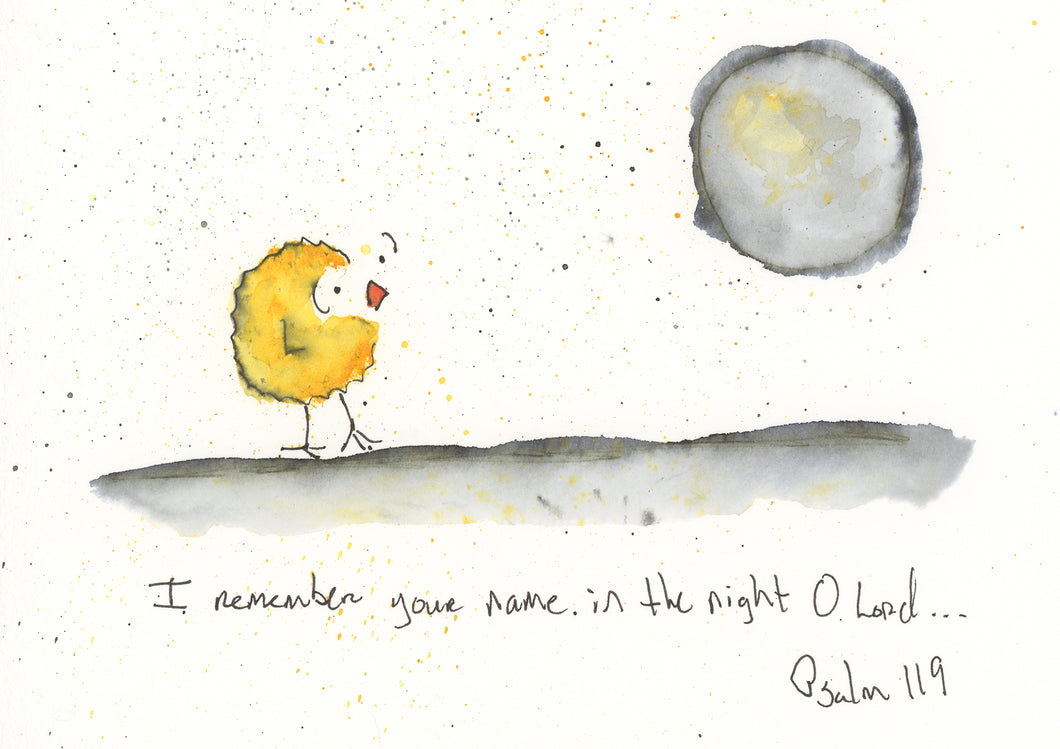 I remember your name. in the night O. Lord...
Psalm 119